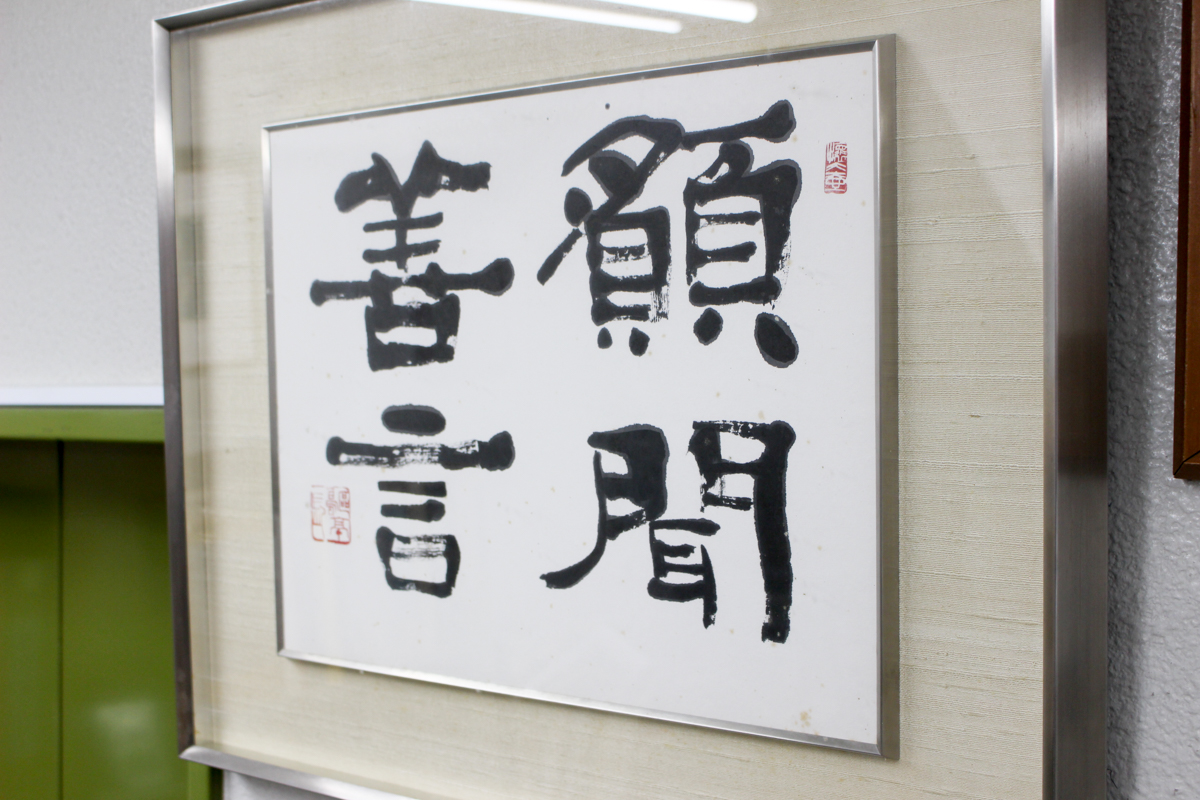 願聞
善言